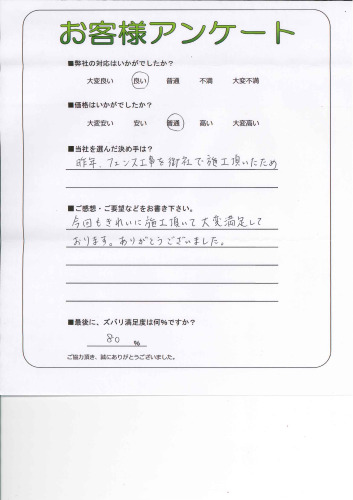 お客様アンケート
■弊社の対応はいかがでしたか?
大変良い 良い 普通 不満 大変不満
■価格はいかがでしたか?
大変安い 安い 普通 高い 大変高い
■当社を選んだ決め手は?
昨年、フェンス工事を御社で施工頂いたため
■ご感想・ご要望などをお書き下さい。
今回もきれいに施工頂いて大変満足して
おります。ありがとうございました。
■最後に、ズバリ満足度は何%ですか?
80 %
ご協力頂き、誠にありがとうございました。